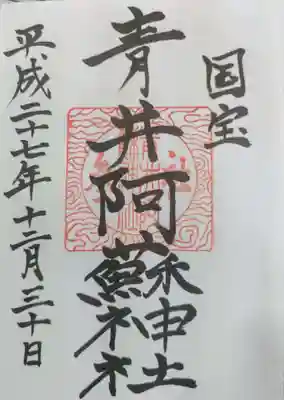 国宝
青井阿蘇神社
平成二十七年十二月三十日